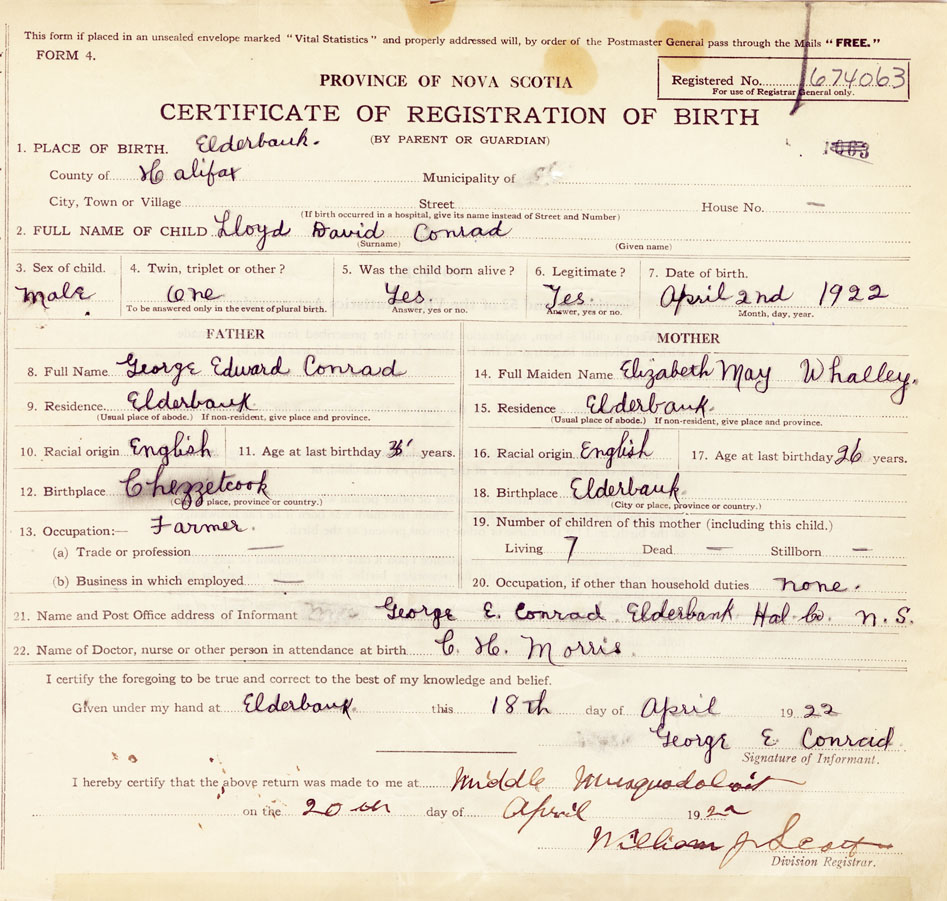 This form if placed in an unsealed envelope marked "Vital Statistics" and properly addressed will, by order of the Postmaster General pass through the Mails "FREE."
FORM 4.
PROVINCE OF NOVA SCOTIA
Registered No. 674063
For use of Registrar General only.
CERTIFICATE OF REGISTRATION OF BIRTH
(BY PARENT OR GUARDIAN)
1. PLACE OF BIRTH. Elderbank.
County of Halifax Municipality of
City, Town or Village Street House No. —
(If birth occurred in a hospital, give its name instead of Street and Number)
2. FULL NAME OF CHILD Lloyd David Conrad
(Surname) (Given name)
3. Sex of child. 4. Twin, triplet or other? 5. Was the child born alive? 6. Legitimate? 7. Date of birth.
Male One Yes. Yes. April 2nd 1922
To be answered only in the event of plural birth. Answer, yes or no. Answer, yes or no. Month, day, year.
FATHER MOTHER
8. Full Name George Edward Conrad 14. Full Maiden Name Elizabeth May Whalley.
9. Residence Elderbank 15. Residence Elderbank.
(Usual place of abode.) If non-resident, give place and province. (Usual place of abode.) If non-resident, give place and province.
10. Racial origin English 11. Age at last birthday years. 16. Racial origin English 17. Age at last birthday 26 years.
12. Birthplace Chezzetcook 18. Birthplace Elderbank.
(City or place, province or country.) (City or place, province or country.)
13. Occupation:— Farmer. 19. Number of children of this mother (including this child.)
(a) Trade or profession — Living 7 Dead — Stillborn —
(b) Business in which employed — 20. Occupation, if other than household duties none.
21. Name and Post Office address of Informant George E. Conrad Elderbank Hal Co. N.S.
22. Name of Doctor, nurse or other person in attendance at birth C. H. Morris.
I certify the foregoing to be true and correct to the best of my knowledge and belief.
Given under my hand at Elderbank this 18th day of April 1922
George E Conrad
Signature of Informant.
I hereby certify that the above return was made to me at Middle Musquodoboit
on the 20th day of April 1922
William J Scott
Division Registrar.